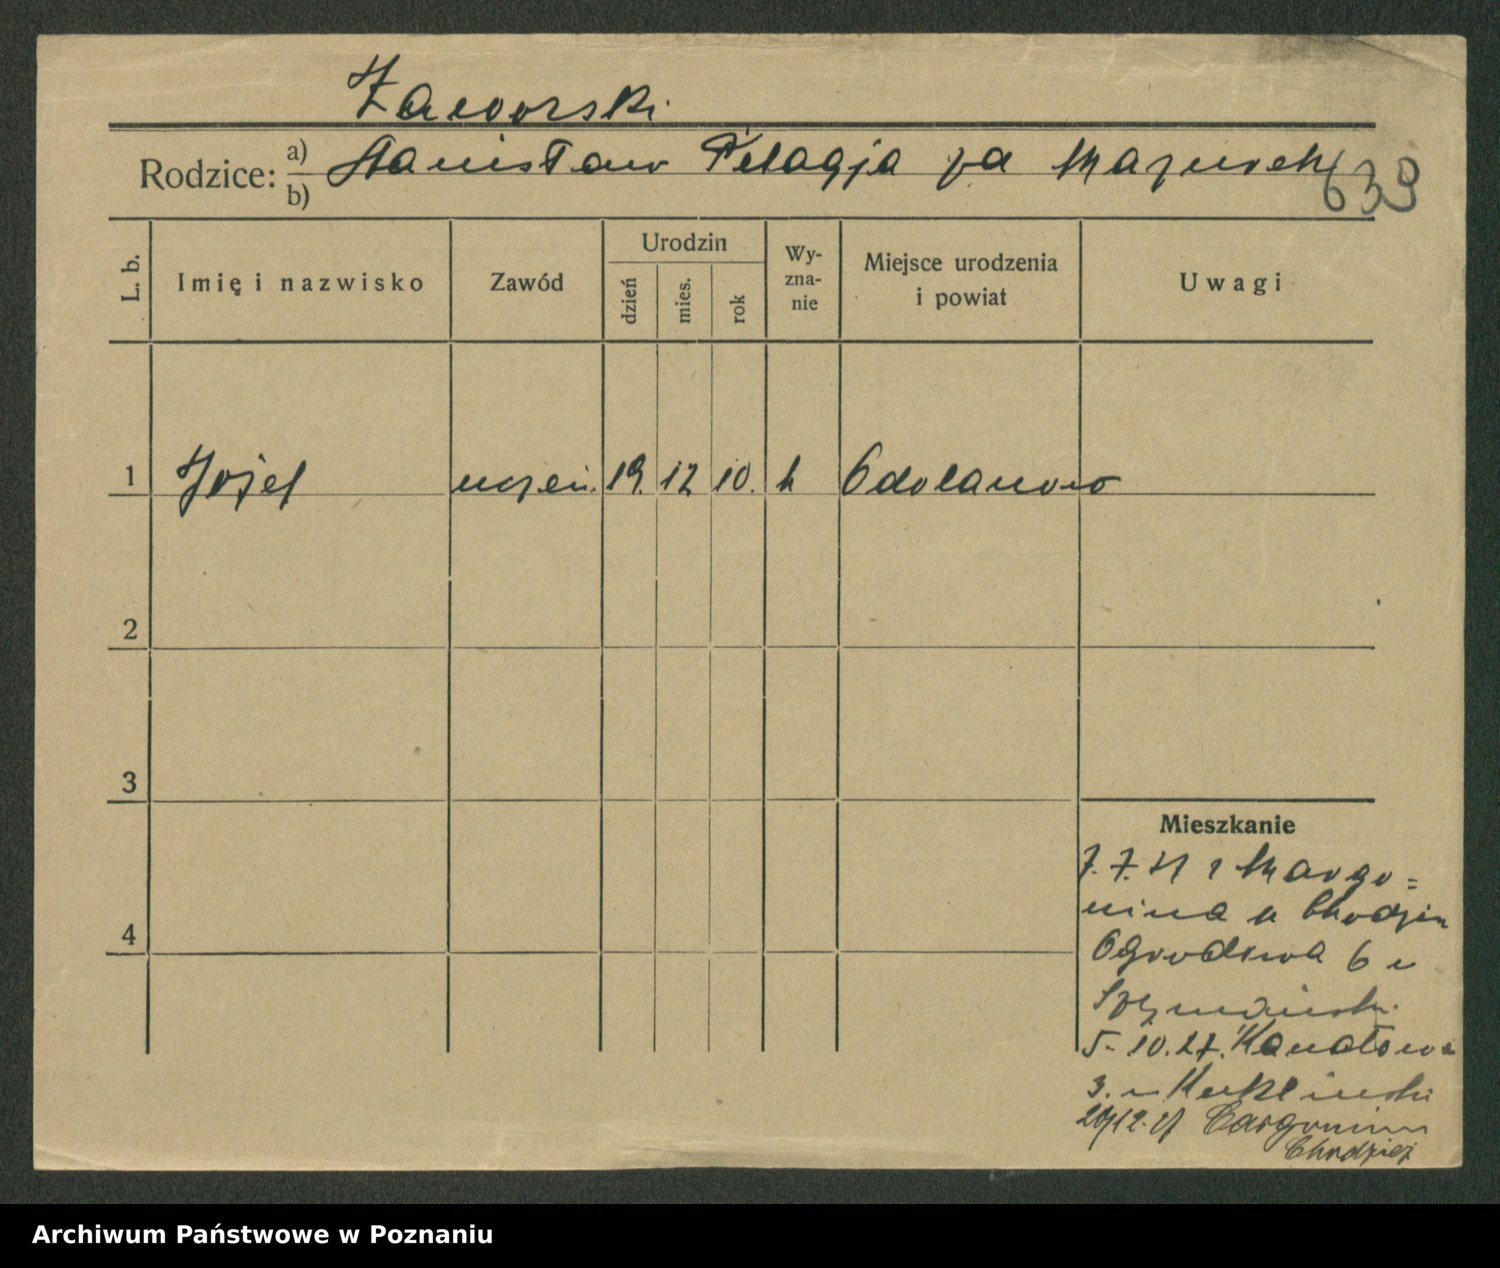 Zaworski
Rodzice: a) b) Stanisław Pelagja za Mazurek
639
L. b.
Imię i nazwisko
Zawód
Urodzin
dzień
mies.
rok
Wy-
zna-
nie
Miejsce urodzenia
i powiat
Uwagi
1 Józef uczeń. 19. 12 10. k Odolanowo
2
3
4
Mieszkanie
7. 7. 27 z Margo=
nina p Chodzież
Ogrodowa 6 u
Szymański.
5. 10. 27. Kanałowa
3. u Kukliński
Chodzież
Archiwum Państwowe w Poznaniu